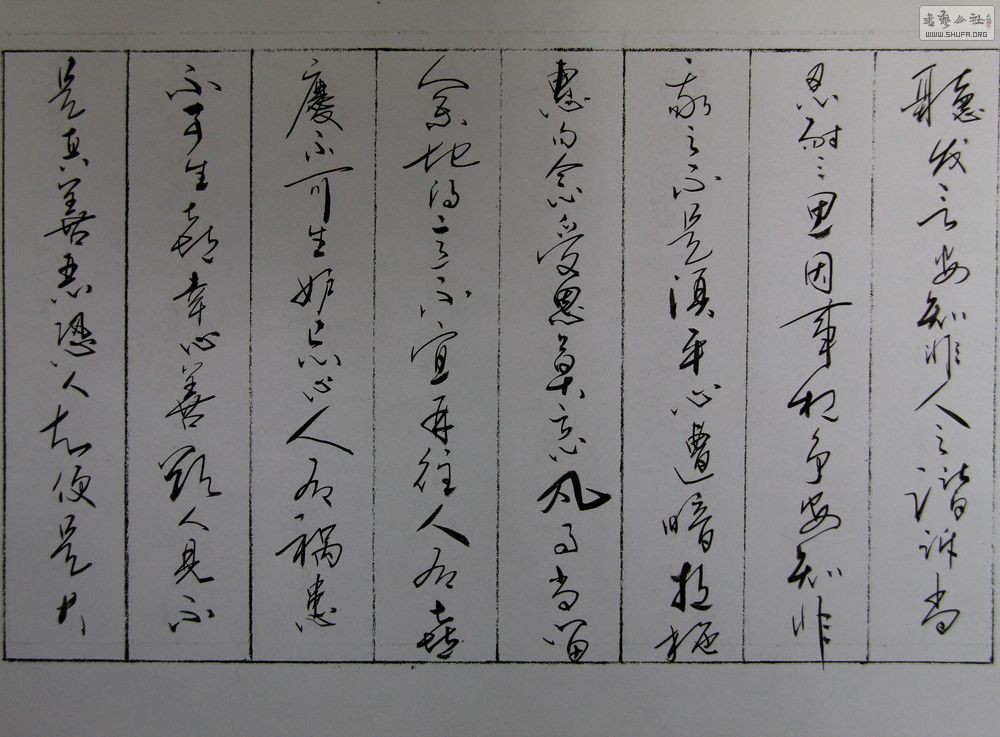 聽发言安知非人之譖訴当
忍耐三思因事相争安知非
我之不是須平心遭暗施
惠勿念受恩莫忘凡事当留
余地得意不宜再往人有喜
慶不可生妒忌心人有禍患
不可生喜幸心善欲人見不
是真善恶恐人知便是大
書藝公社
WWW.SHUFA.ORG